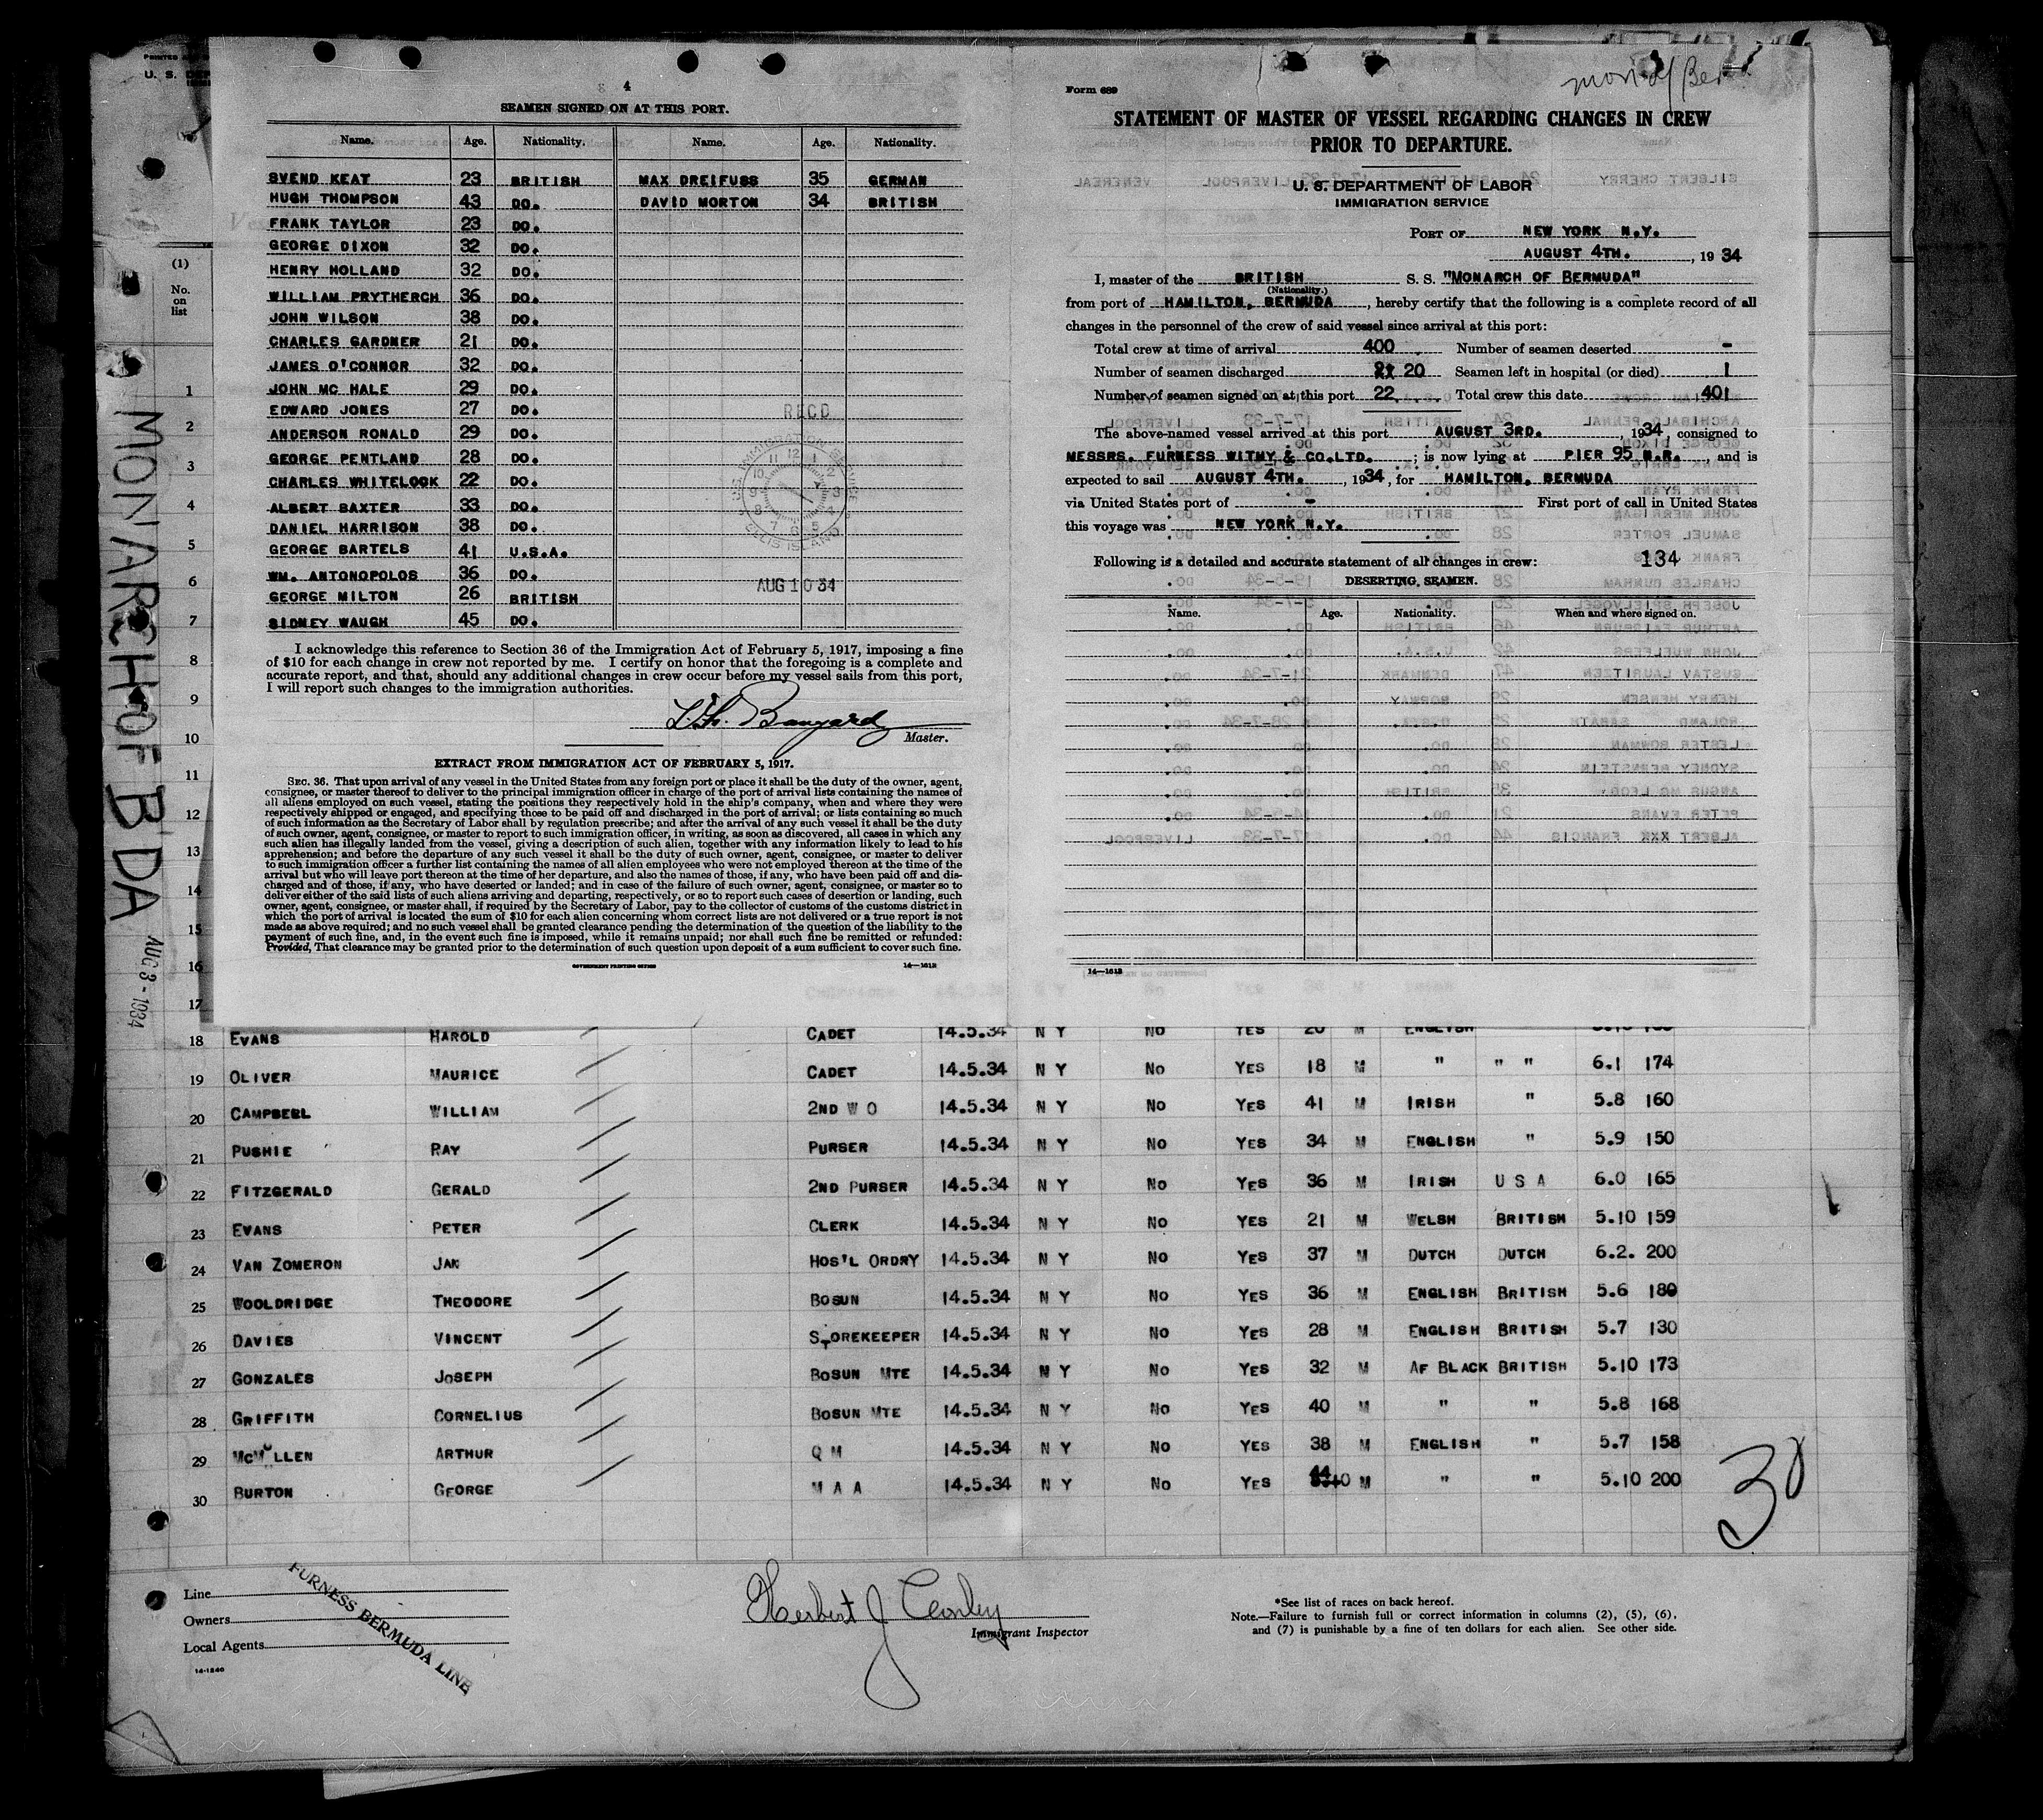 PRINTED
U. S. DEP
(1)
No.
on
list
MONARCH OF B'DA
AUG 3 - 1934
4
SEAMEN SIGNED ON AT THIS PORT.
Name. Age. Nationality. Name. Age. Nationality.
SVEND KEAT 23 BRITISH MAX DREIFUSS 35 GERMAN
HUGH THOMPSON 43 DO. DAVID MORTON 34 BRITISH
FRANK TAYLOR 23 DO.
GEORGE DIXON 32 DO.
HENRY HOLLAND 32 DO.
WILLIAM PRYTHERCH 36 DO.
JOHN WILSON 38 DO.
CHARLES GARDNER 21 DO.
JAMES O'CONNOR 32 DO.
JOHN MC HALE 29 DO.
EDWARD JONES 27 DO.
ANDERSON RONALD 29 DO.
GEORGE PENTLAND 28 DO.
CHARLES WHITELOCK 22 DO.
ALBERT BAXTER 33 DO.
DANIEL HARRISON 38 DO.
GEORGE BARTELS 41 U.S.A.
WM. ANTONOPOLOS 36 DO.
GEORGE MILTON 26 BRITISH
SIDNEY WAUGH 45 DO.
REC'D
U.S. IMMIGRATION SERVICE
ELLIS ISLAND
AUG 10 34
I acknowledge this reference to Section 36 of the Immigration Act of February 5, 1917, imposing a fine
of $10 for each change in crew not reported by me. I certify on honor that the foregoing is a complete and
accurate report, and that, should any additional changes in crew occur before my vessel sails from this port,
I will report such changes to the immigration authorities.
Banyard
Master.
EXTRACT FROM IMMIGRATION ACT OF FEBRUARY 5, 1917.
SEC. 36. That upon arrival of any vessel in the United States from any foreign port or place it shall be the duty of the owner, agent,
consignee, or master thereof to deliver to the principal immigration officer in charge of the port of arrival lists containing the names of
all aliens employed on such vessel, stating the positions they respectively hold in the ship's company, when and where they were
respectively shipped or engaged, and specifying those to be paid off and discharged in the port of arrival; or lists containing so much
of such information as the Secretary of Labor shall by regulation prescribe; and after the arrival of any such vessel it shall be the duty
of such owner, agent, consignee, or master to report to such immigration officer, in writing, as soon as discovered, all cases in which any
such alien has illegally landed from the vessel, giving a description of such alien, together with any information likely to lead to his
apprehension; and before the departure of any such vessel it shall be the duty of such owner, agent, consignee, or master to deliver
to such immigration officer a further list containing the names of all alien employees who were not employed thereon at the time of the
arrival but who will leave port thereon at the time of her departure, and also the names of those, if any, who have been paid off and dis-
charged and of those, if any, who have deserted or landed; and in case of the failure of such owner, agent, consignee, or master so to
deliver either of the said lists of such aliens arriving and departing, respectively, or so to report such cases of desertion or landing, such
owner, agent, consignee, or master shall, if required by the Secretary of Labor, pay to the collector of customs of the customs district in
which the port of arrival is located the sum of $10 for each alien concerning whom correct lists are not delivered or a true report is not
made as above required; and no such vessel shall be granted clearance pending the determination of the question of the liability to the
payment of such fine, and, in the event such fine is imposed, while it remains unpaid; nor shall such fine be remitted or refunded:
Provided, That clearance may be granted prior to the determination of such question upon deposit of a sum sufficient to cover such fine.
GOVERNMENT PRINTING OFFICE 14—1612
Mon of Ber
Form 689
STATEMENT OF MASTER OF VESSEL REGARDING CHANGES IN CREW
PRIOR TO DEPARTURE.
U. S. DEPARTMENT OF LABOR
IMMIGRATION SERVICE
PORT OF NEW YORK N.Y.
AUGUST 4TH. , 19 34
I, master of the BRITISH S. S. "MONARCH OF BERMUDA"
(Nationality.)
from port of HAMILTON, BERMUDA , hereby certify that the following is a complete record of all
changes in the personnel of the crew of said vessel since arrival at this port:
Total crew at time of arrival 400 Number of seamen deserted -
Number of seamen discharged 20 Seamen left in hospital (or died) 1
Number of seamen signed on at this port 22 Total crew this date 401
The above-named vessel arrived at this port AUGUST 3RD. , 1934, consigned to
MESSRS. FURNESS WITHY & CO.LTD. ; is now lying at PIER 95 N.R. , and is
expected to sail AUGUST 4TH. , 1934, for HAMILTON, BERMUDA
via United States port of - First port of call in United States
this voyage was NEW YORK N.Y.
Following is a detailed and accurate statement of all changes in crew: 134
DESERTING SEAMEN.
Name. Age. Nationality. When and where signed on.
14—1612
1
2
3
4
5
6
7
8
9
10
11
12
13
14
15
16
17
18 EVANS HAROLD CADET 14.5.34 N Y NO YES 20 M ENGLISH
19 OLIVER MAURICE CADET 14.5.34 N Y NO YES 18 M " " " 6.1 174
20 CAMPBELL WILLIAM 2ND W O 14.5.34 N Y NO YES 41 M IRISH " 5.8 160
21 PUSHIE RAY PURSER 14.5.34 N Y NO YES 34 M ENGLISH " 5.9 150
22 FITZGERALD GERALD 2ND PURSER 14.5.34 N Y NO YES 36 M IRISH U S A 6.0 165
23 EVANS PETER CLERK 14.5.34 N Y NO YES 21 M WELSH BRITISH 5.10 159
24 VAN ZOMERON JAN HOS'L ORDRY 14.5.34 N Y NO YES 37 M DUTCH DUTCH 6.2. 200
25 WOOLDRIDGE THEODORE BOSUN 14.5.34 N Y NO YES 36 M ENGLISH BRITISH 5.6 180
26 DAVIES VINCENT STOREKEEPER 14.5.34 N Y NO YES 28 M ENGLISH BRITISH 5.7 130
27 GONZALES JOSEPH BOSUN MTE 14.5.34 N Y NO YES 32 M AF BLACK BRITISH 5.10 173
28 GRIFFITH CORNELIUS BOSUN MTE 14.5.34 N Y NO YES 40 M " " 5.8 168
29 MCMULLEN ARTHUR Q M 14.5.34 N Y NO YES 38 M ENGLISH " 5.7 158
30 BURTON GEORGE M A A 14.5.34 N Y NO YES 44 M " " 5.10 200
30
Line
Owners
Local Agents
14-1240
FURNESS BERMUDA LINE
Herbert J
Immigrant Inspector
*See list of races on back hereof.
Note.—Failure to furnish full or correct information in columns (2), (5), (6),
and (7) is punishable by a fine of ten dollars for each alien. See other side.